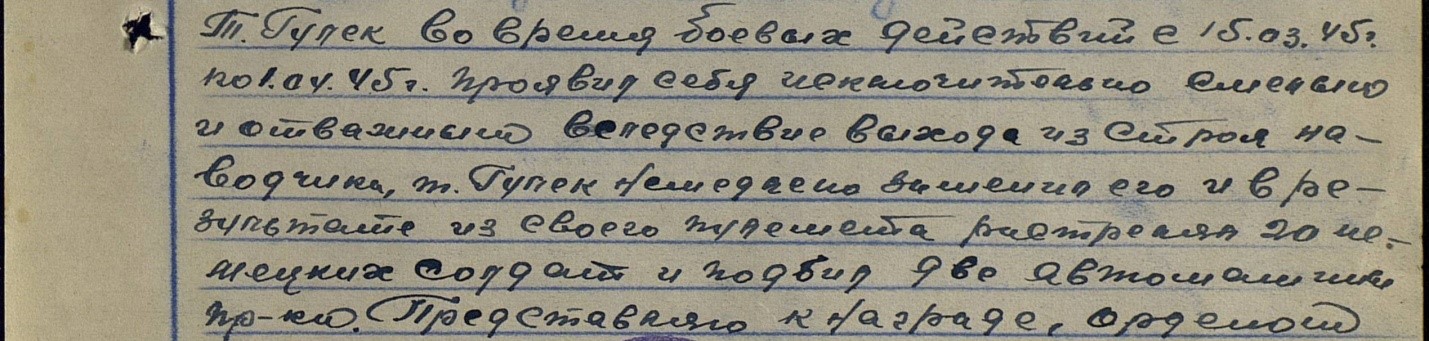 Т. Гулек во время боевых действий с 15.03.45г.
по 1.04.45г. проявил себя исключительно смелым
и отважным вследствие выхода из строя на-
водчика, т. Гулек немедлено заменил его и в ре-
зультате из своего пулемета растрелял 20 не-
мецких солдат и подбил две автомашины
пр-ка. Представляю к награде, орденом